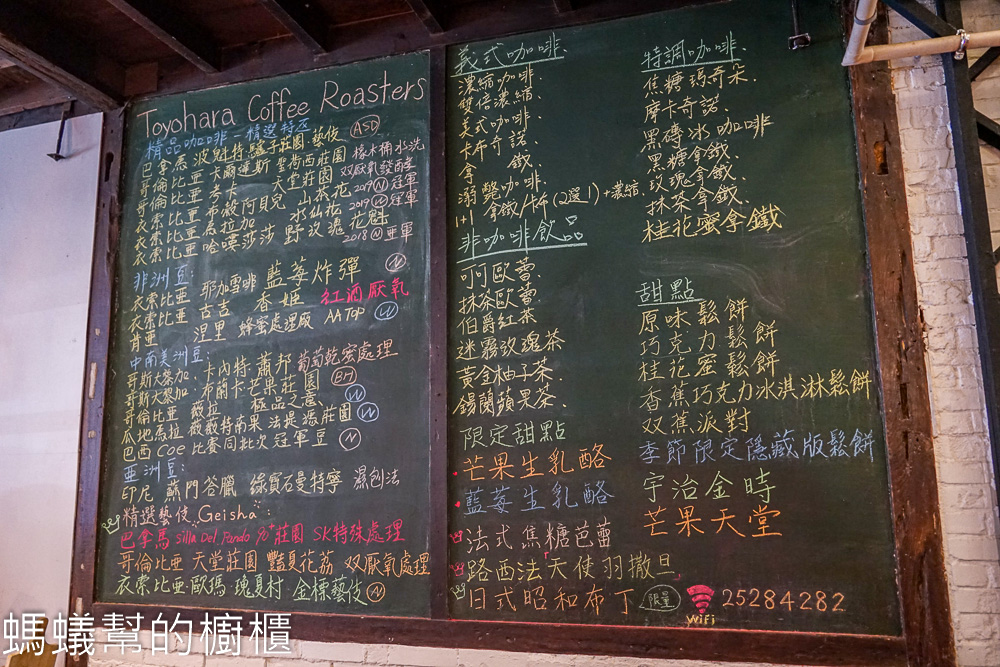 Toyohara Coffee Roasters
精品咖啡 精選特区
巴拿馬 波魁特 驢子莊園 藝伎 ASD
哥倫比亞 卡爾達斯 聖荷西莊園 橡木桶水洗
哥倫比亞 考卡 天堂莊園 双厭氧發酵
衣索比亞 布穀阿貝兒 山茶花 2019 N 冠軍
衣索比亞 馬拉加 水仙妃 2019 W 冠軍
衣索比亞 哈嘿莎莎 野玫瑰 花魁 2018 N 亜軍
非洲豆:
衣索比亞 耶加雪啡 藍莓炸彈 N
衣索比亞 古吉 香姬 紅酒厭氧
肯亜 涅里 蜂蜜處理廠 AA TOP W
中南美洲豆:
哥斯大黎加. 卡內特. 蕭邦 葡萄乾蜜處理
哥斯大黎加. 布蘭卡芒果莊園 BH
哥倫比亜 薇拉 極品之意 W
瓜地馬拉 薇薇特南果 法提瑪莊園 W
巴西 Coe 比賽同批次冠軍豆 N
亜洲豆:
印尼 蘇門答臘 綠寶石曼特寧 濕刨法
精選藝伎 "Geisha":
巴拿馬 Silla Del Pando 90+莊園 SK特殊處理
哥倫比亜 天堂莊園 豔夏花荔 双厭氧處理
衣索比亜 歐瑪 瑰夏村 金標藝伎 N
義式咖啡.
濃縮咖啡.
雙倍濃縮.
美式咖啡.
卡布奇諾.
拿鐵.
溺斃咖啡.
1+1 拿鐵/卡布 (2選1)+濃縮.
非咖啡飲品
可可歐蕾.
抹茶歐蕾.
伯爵紅茶
迷霧玫瑰茶
黃金柚子茶.
錫蘭蘋果茶.
限定甜點
芒果生乳酪
藍莓生乳酪
法式焦糖芭蕾
路西法天使羽撒旦
日式昭和布丁 限量
特調咖啡.
焦糖瑪奇朵.
摩卡奇諾.
黑磚冰咖啡
黑糖拿鐵.
玫瑰拿鐵.
抹茶拿鐵.
桂花蜜拿鐵
甜點
原味鬆餅
巧克力鬆餅
桂花蜜鬆餅
香蕉巧克力冰淇淋鬆餅
双蕉派對
季節限定隱藏版鬆餅
宇治金時
芒果天堂
wifi 25284282
螞蟻幫的櫥櫃